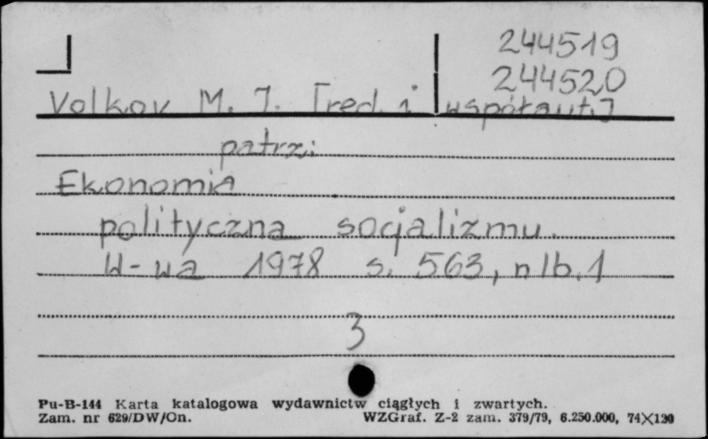 244519
244520
Volkov M. I. [red. i współaut.]
patrz:
Ekonomia
polityczna socjalizmu.
W-wa 1978 s. 563, nlb. 1
3
Pu-B-144 Karta katalogowa wydawnictw ciągłych i zwartych.
Zam. nr 629/DW/On. WZGraf. Z-2 zam. 379/79, 6.250.000, 74X120